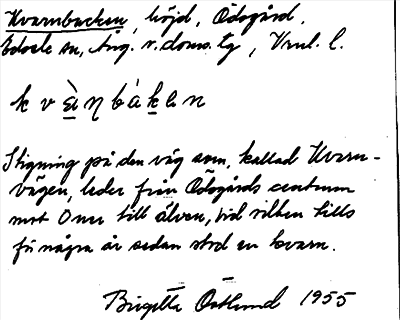 Kvarnbacken, höjd, Ödsgård,
Edsele sn, Ång. v. doms. tg, Vnl. l.
k v æ̀ ŋ b á k a n
Stigning på den väg som, kallad Kvarn-
vägen, leder från Ödsgårds centrum
mot O ner till älven, vid vilken tills
för några år sedan stod en kvarn.
Birgitta Östlund 1955